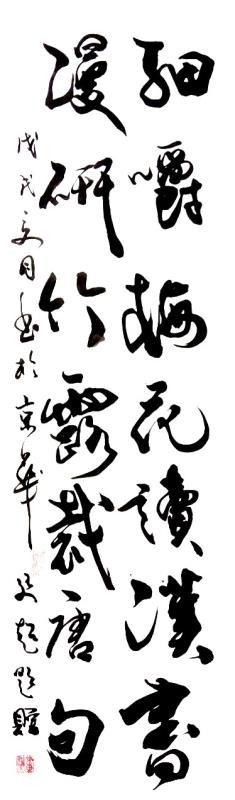 細嚼梅花讀漢書
漫研竹露裁唐句
戊戌夏月書於京華